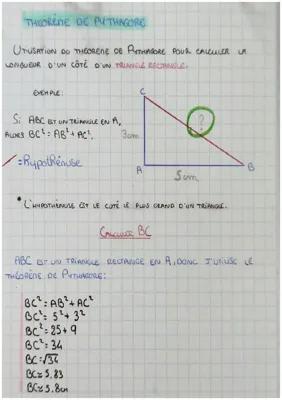 THEORÈME DE PYTHAGORE
UTILISATION DU THEOREME DE PYTHAGORE POUR CALCULER LA
LONGUEUR D'UN CÔTÉ D'UN TRIANGLE RECTANGLE.
EXEMPLE:
Si ABC EST UN TRIANGLE EN A,
ALORS BC²=AB²+AC².
=Hypothénuse
C
?
3cm
A
B
5cm
• L'HYPOTHÉNUSE EST LE COTÉ LE PLUS GRAND D'UN TRIANGLE.
CALCULER BC
ABC EST UN TRIANGLE RECTANGE EN A, DONC J'UTILISE LE
THÉORÈME DE PYTHAGORE:
BC²=AB²+AC²
BC²=5²+3²
BC²=25+9
BC²=34
BC=√34
BC≈5.83
BC≈5.8cm